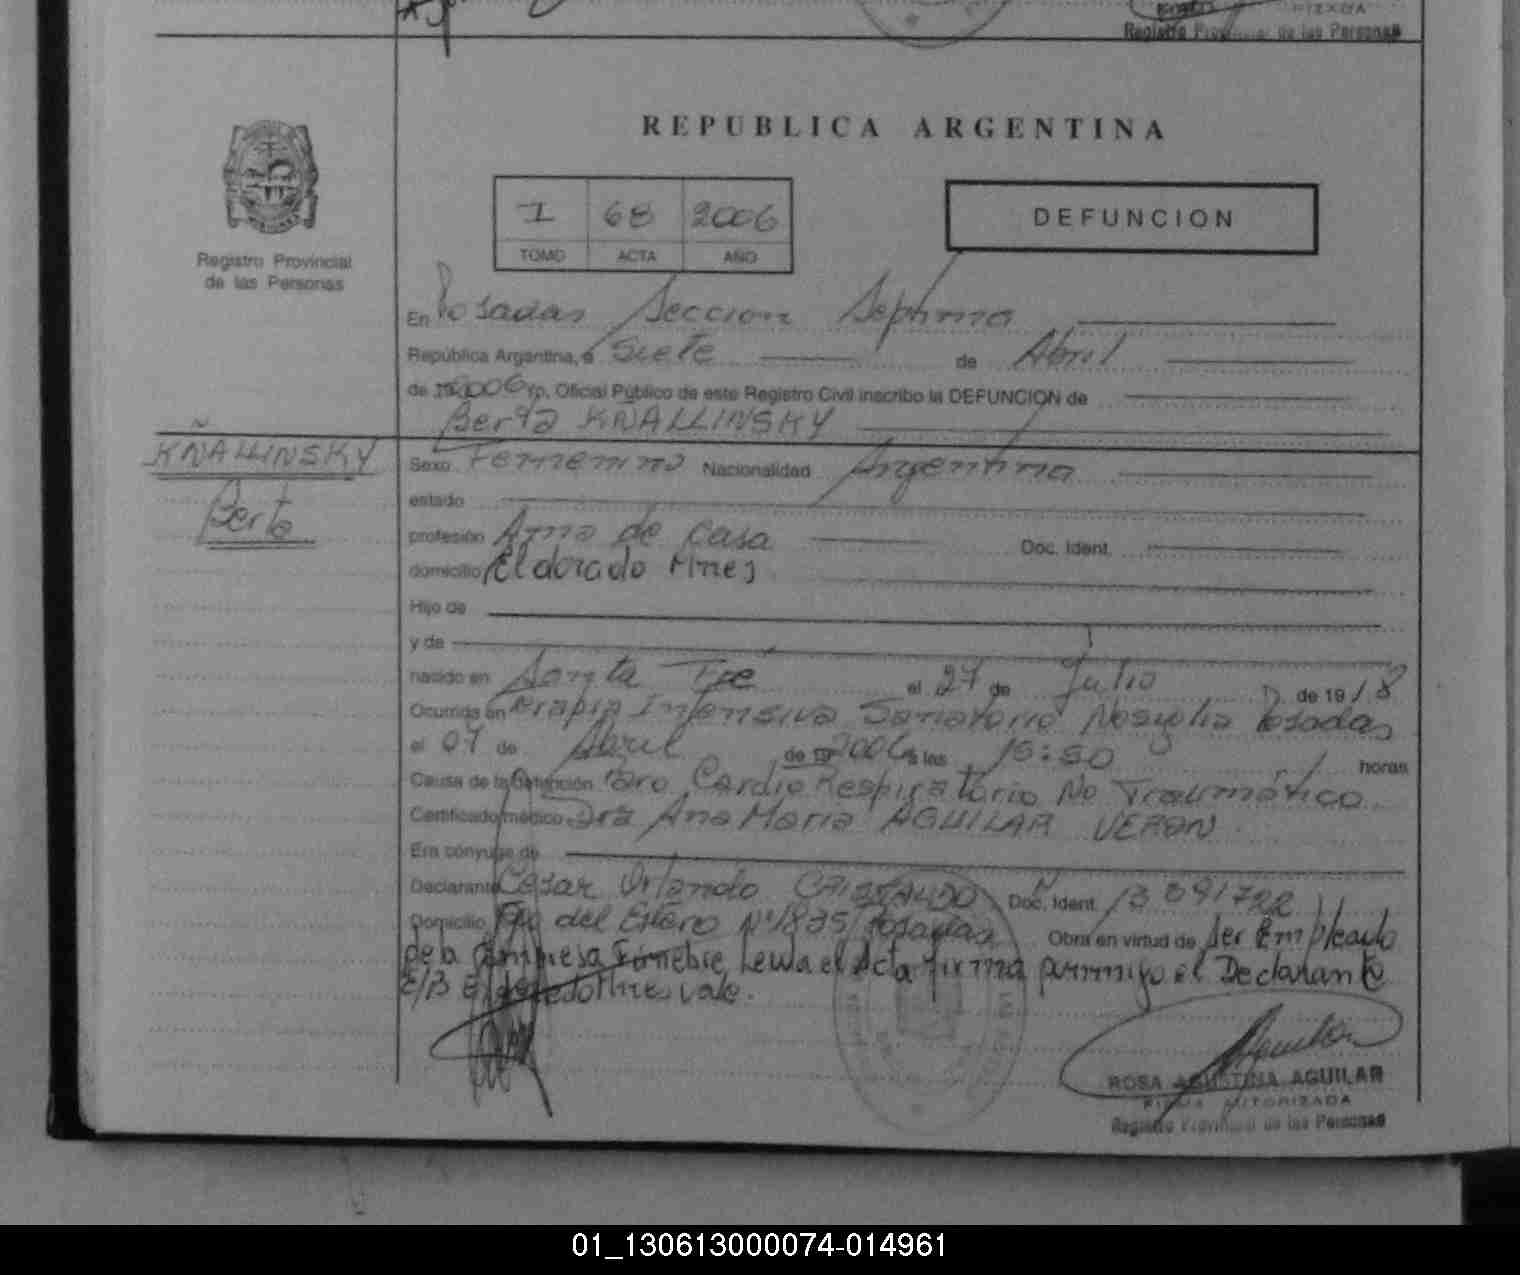 Registro Provincial de las Personas
REPUBLICA ARGENTINA
Registro Provincial
de las Personas
I 68 2006
TOMO ACTA AÑO
DEFUNCION
En Posadas Seccion Septima
República Argentina, a Siete de Abril
de 2006 yo, Oficial Público de este Registro Civil inscribo la DEFUNCION de
Berta KÑALLINSKY
KÑALLINSKY
Berta
Sexo Femenino Nacionalidad Argentina
estado
profesión Ama de Casa Doc. Ident.
domicilio Eldorado Mnes
Hijo de
y de
nacido en Santa Fé el 27 de Julio de 1918
Ocurrida en Terapia Intensiva Sanatorio Posadas
el 07 de Abril de 2006 a las horas
Causa de la defunción Paro Cardio Respiratorio No Traumático
Certificado médico Dra Ana Maria AGUILAR VERON
Era cónyuge de
Declarante Cesar Orlando Doc. Ident.
Domicilio del Estero Nº 1835 Posadas Obra en virtud de Ser Empleado
de la Empresa Fúnebre, Leida el Acta firma conmigo el Declarante
E/B Eldorado Mnes vale.
ROSA AGUSTINA AGUILAR
FIRMA AUTORIZADA
Registro Provincial de las Personas
01_130613000074-014961